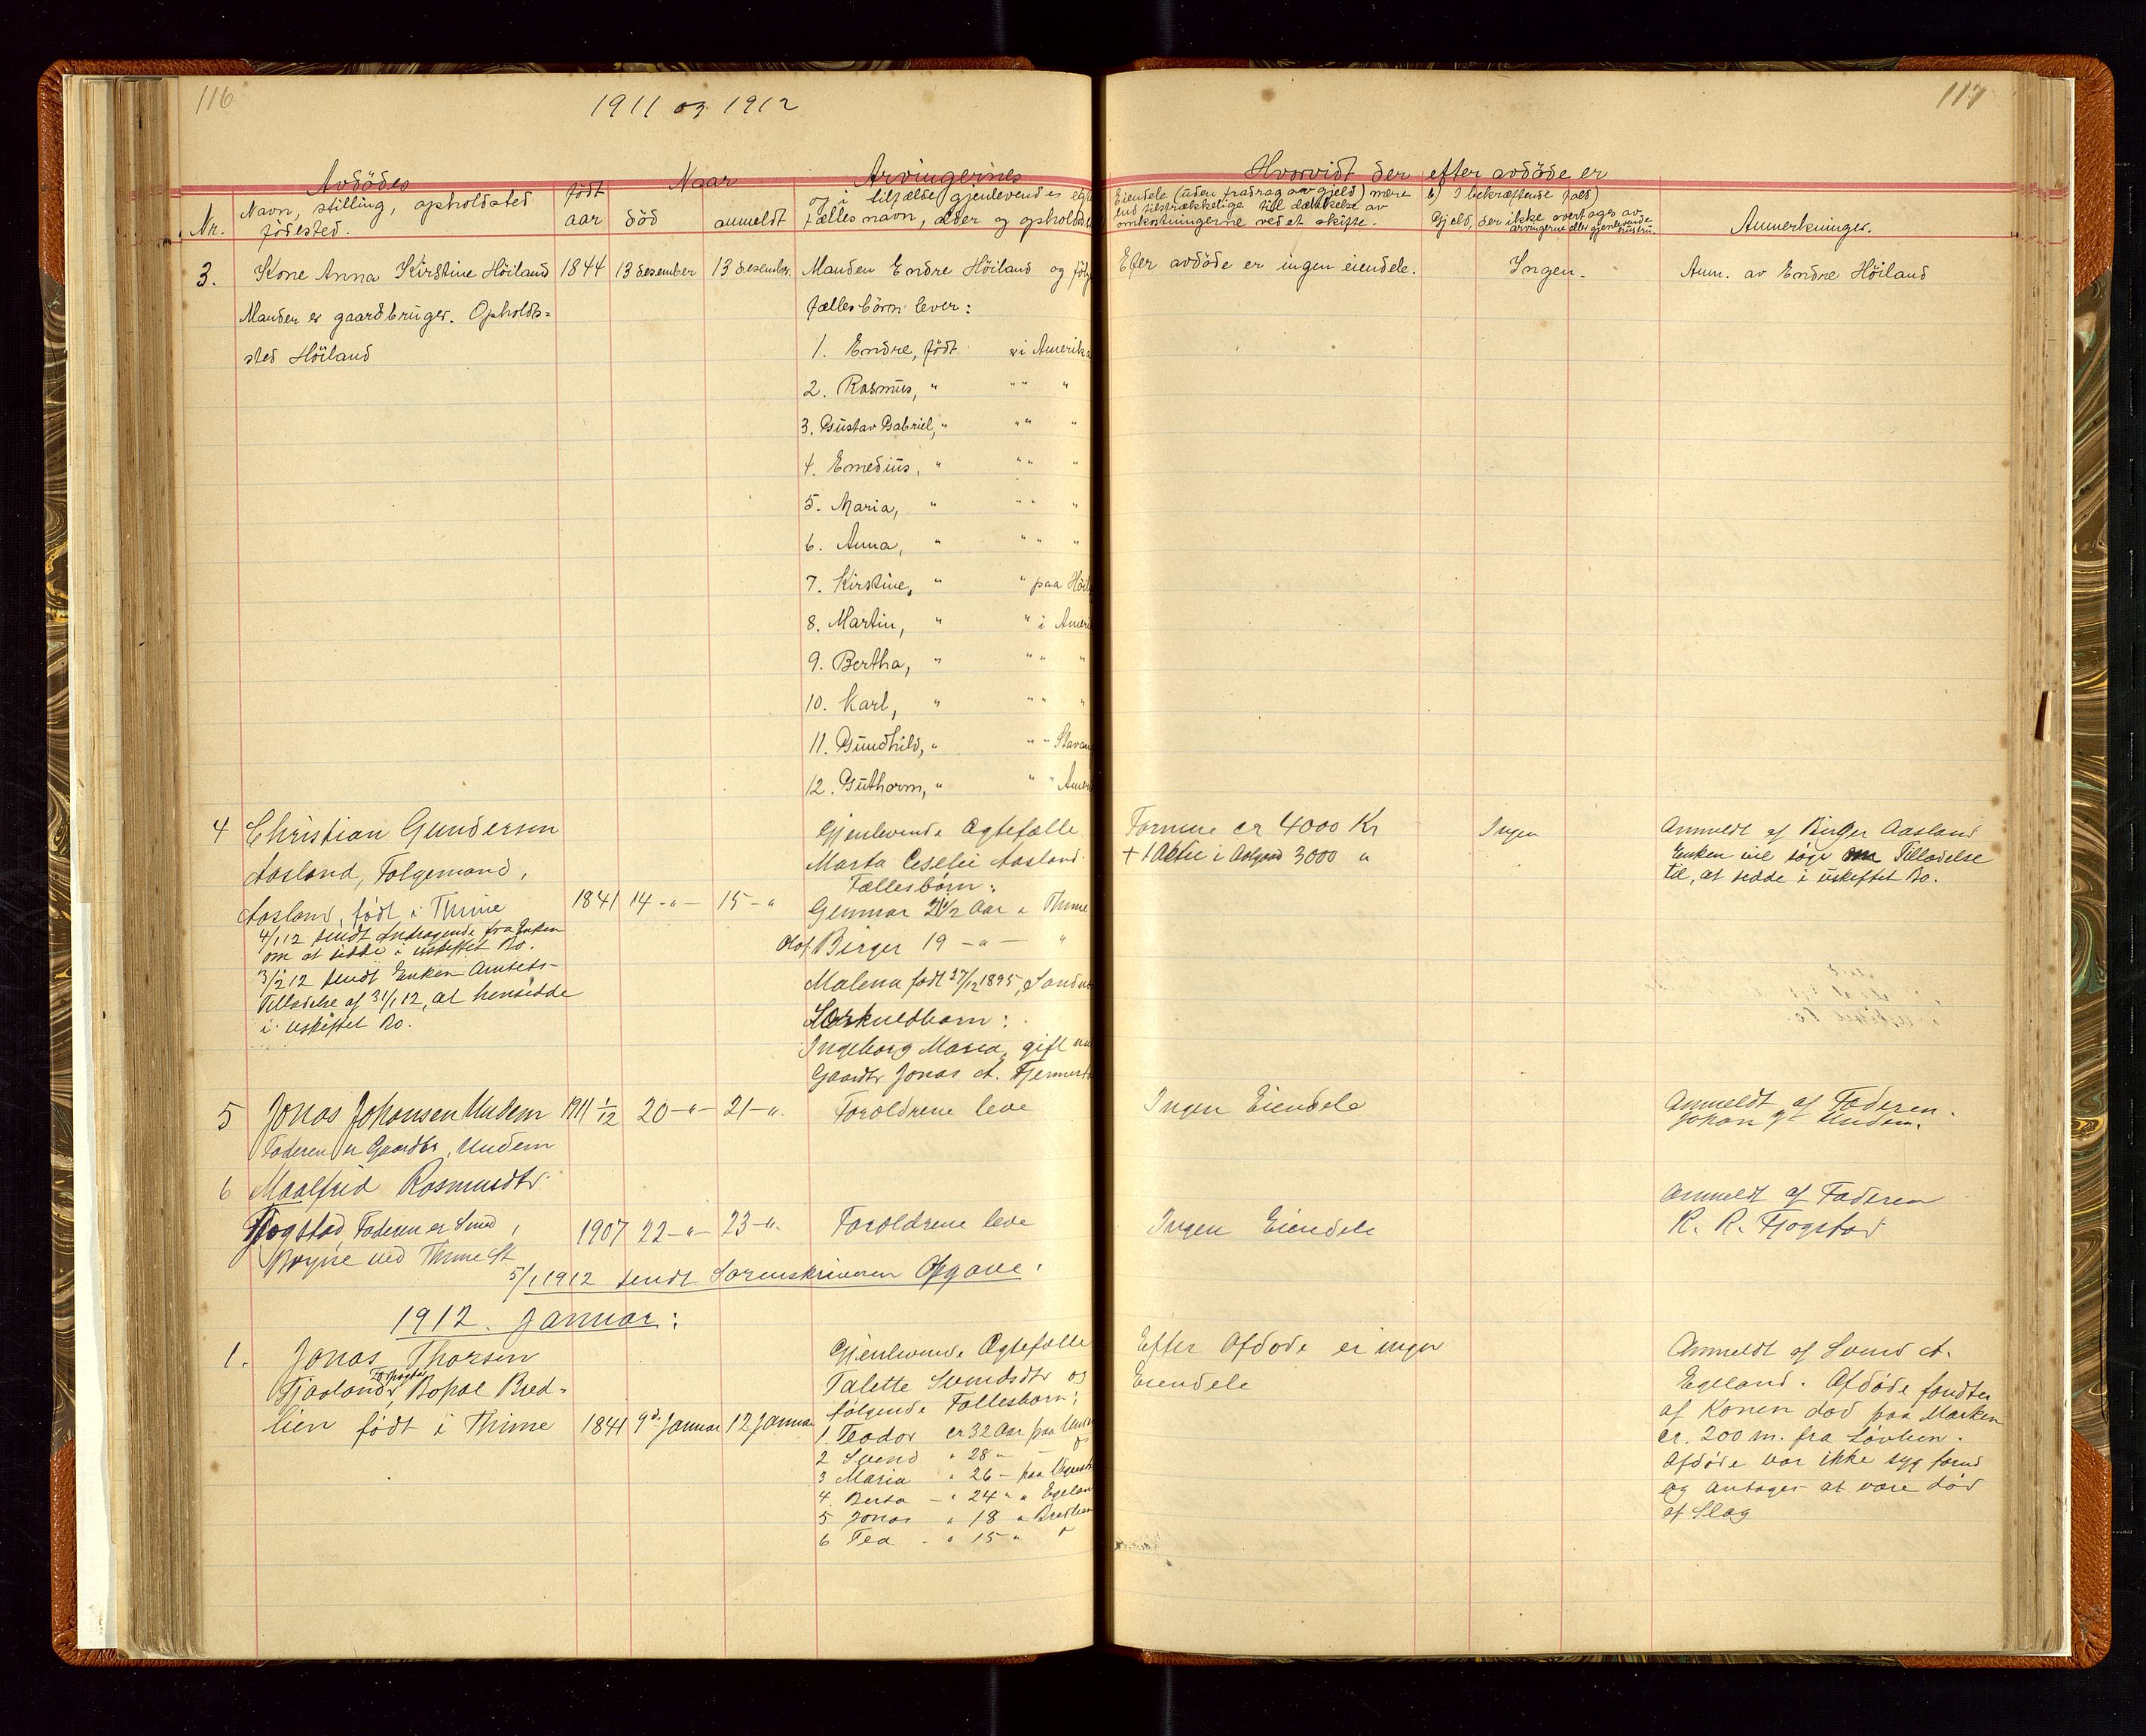 116
1911 og 1912
Avdödes
Naar
Arvingernes
Nr.
Navn, stilling, opholdsted
födested.
födt
aar
död
anmeldt
og i tilfælde gjenlevendes
fælles navn, alder og
3. Kone Anna Kirstine Höiland 1844 13 desember 13 desember. Manden Endre Höiland og
Manden er gaardbruger. Opholds=
sted Höiland
fælles börn lever:
1. Endre, födt i
2. Rasmus, " " " "
3. Gustav Gabriel, " " " "
4. Emedius, " " " "
5. Maria, " " " "
6. Anna, " " " "
7. Kirstine, " " paa
8. Martin, " " i
9. Bertha, " " " "
10. Karl, " " " "
11. Gundhild, " " -
12. Guthorm, " " "
4 Christian Gundersen
Aasland, Folgemand,
Aasland, født i Thime 1841 14 -"- 15 -"
4/1 12 sendt Andragende fra Enken
om at sidde i uskiftet Bo.
3/2 12 sendt Enken Amtets-
Tilladelse af 31/1 12, at hensidde
i uskiftet Bo.
Gjenlevende Ægtefælle
Marta Aasland.
Fællesbørn:
Gunnar 21 1/2 Aar " Thime
Olof. Birger 19 -"- "
Malena født 27/12 1895,
Særkuldbarn:
Ingeborg Maria, gift
Gaardbr Jonas A.
5 Jonas Johansen Undem 1911 1/12 20 -"- 21 -". Forældrene leve
Faderen er Gaardbr, Undem
6 Maalfrid Rasmusdtr.
Fjogstad, Faderen er Smed, 1907 22 -"- 23 -". Forældrene leve
Bryne ved Thime St
5/1 1912 sendt Sorenskriveren Opgave.
1912. Januar:
1. Jonas Thorsen
Fjaaland, Bopæl Bred=
lien født i Thime 1841 9de Januar 12 Januar
Gjenlevende Ægtefælle
Talette Svendsdtr og
følgende Fællesbørn:
1. Teodor er 32 Aar paa
2 Svend " 28 "
3 Maria " 26 - paa
4. Berta - " 24 " "
5 Jonas " 18 "
6 Tea - " 15 " "
117
Hvorvidt der efter avdöde er
Eiendele (uden fradrag av gjeld) mere
end tilstrækkelige til dækkelse av
omkostningerne ved et skifte.
b) I bekræftende fald)
Gjeld, der ikke overtages av
arvingerne eller gjenlevende
Anmerkninger.
Efter avdöde er ingen eiendele. Ingen. Anm. av Endre Höiland
Formue er 4000 Kr Ingen
+ 1 Aktie i 3000 "
Anmeldt af Birger Aasland
Enken vil søge om Tilladelse
til, at sidde i uskiftet Bo.
Ingen Eiendele
Anmeldt af Faderen.
Johan Undem.
Ingen Eiendele
Anmeldt af Faderen
R. R. Fjogstad
Efter Afdøde er ingen
Eiendele
Anmeldt af Svend A.
Egeland. Afdøde fandtes
af Konen død paa Marken
cr. 200 m. fra Løvhen.
Afdøde var ikke syg forud
og antages at være død
af Slag